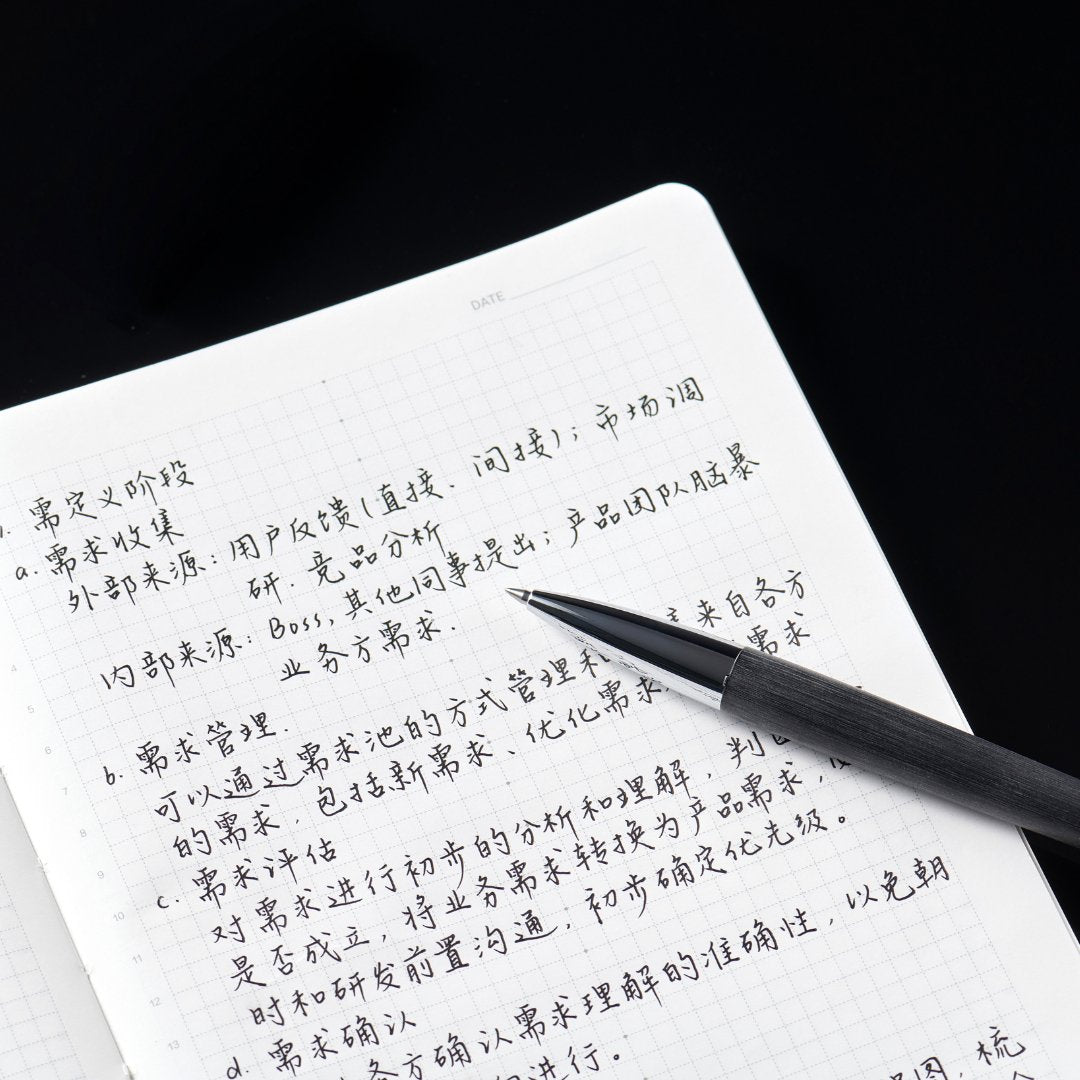 DATE
1. 需定义阶段
a. 需求收集
外部来源：用户反馈（直接、间接）；市场调
研、竞品分析
内部来源：Boss, 其他同事提出；产品团队脑暴
业务方需求.
b. 需求管理.
可以通过需求池的方式管理和 来自各方
的需求，包括新需求、优化需求 需求
c. 需求评估
对需求进行初步的分析和理解，判
是否成立，将业务需求转换为产品需求，
时和研发前置沟通，初步确定优先级。
d. 需求确认
各方确认需求理解的准确性，以免朝
进行。
图，梳
4
5
6
7
8
9
10
11
12
13